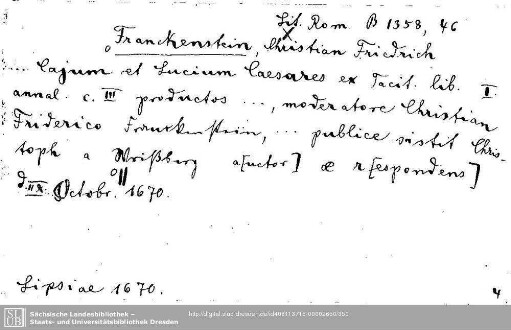 Lit. Rom. B 1358, 46
Franckenstein, Christian Friedrich
... Cajum et Lucium Caesares ex Tacit. lib. I.
annal. c. III productos ..., moderatore Christian
Friderico Franckenstein, ... publice sistit Chris-
toph a Wrißberg a[uctor] & r[espondens]
d. Octobr. 1670.
Lipsiae 1670.
4
Sächsische Landesbibliothek –
Staats- und Universitätsbibliothek Dresden